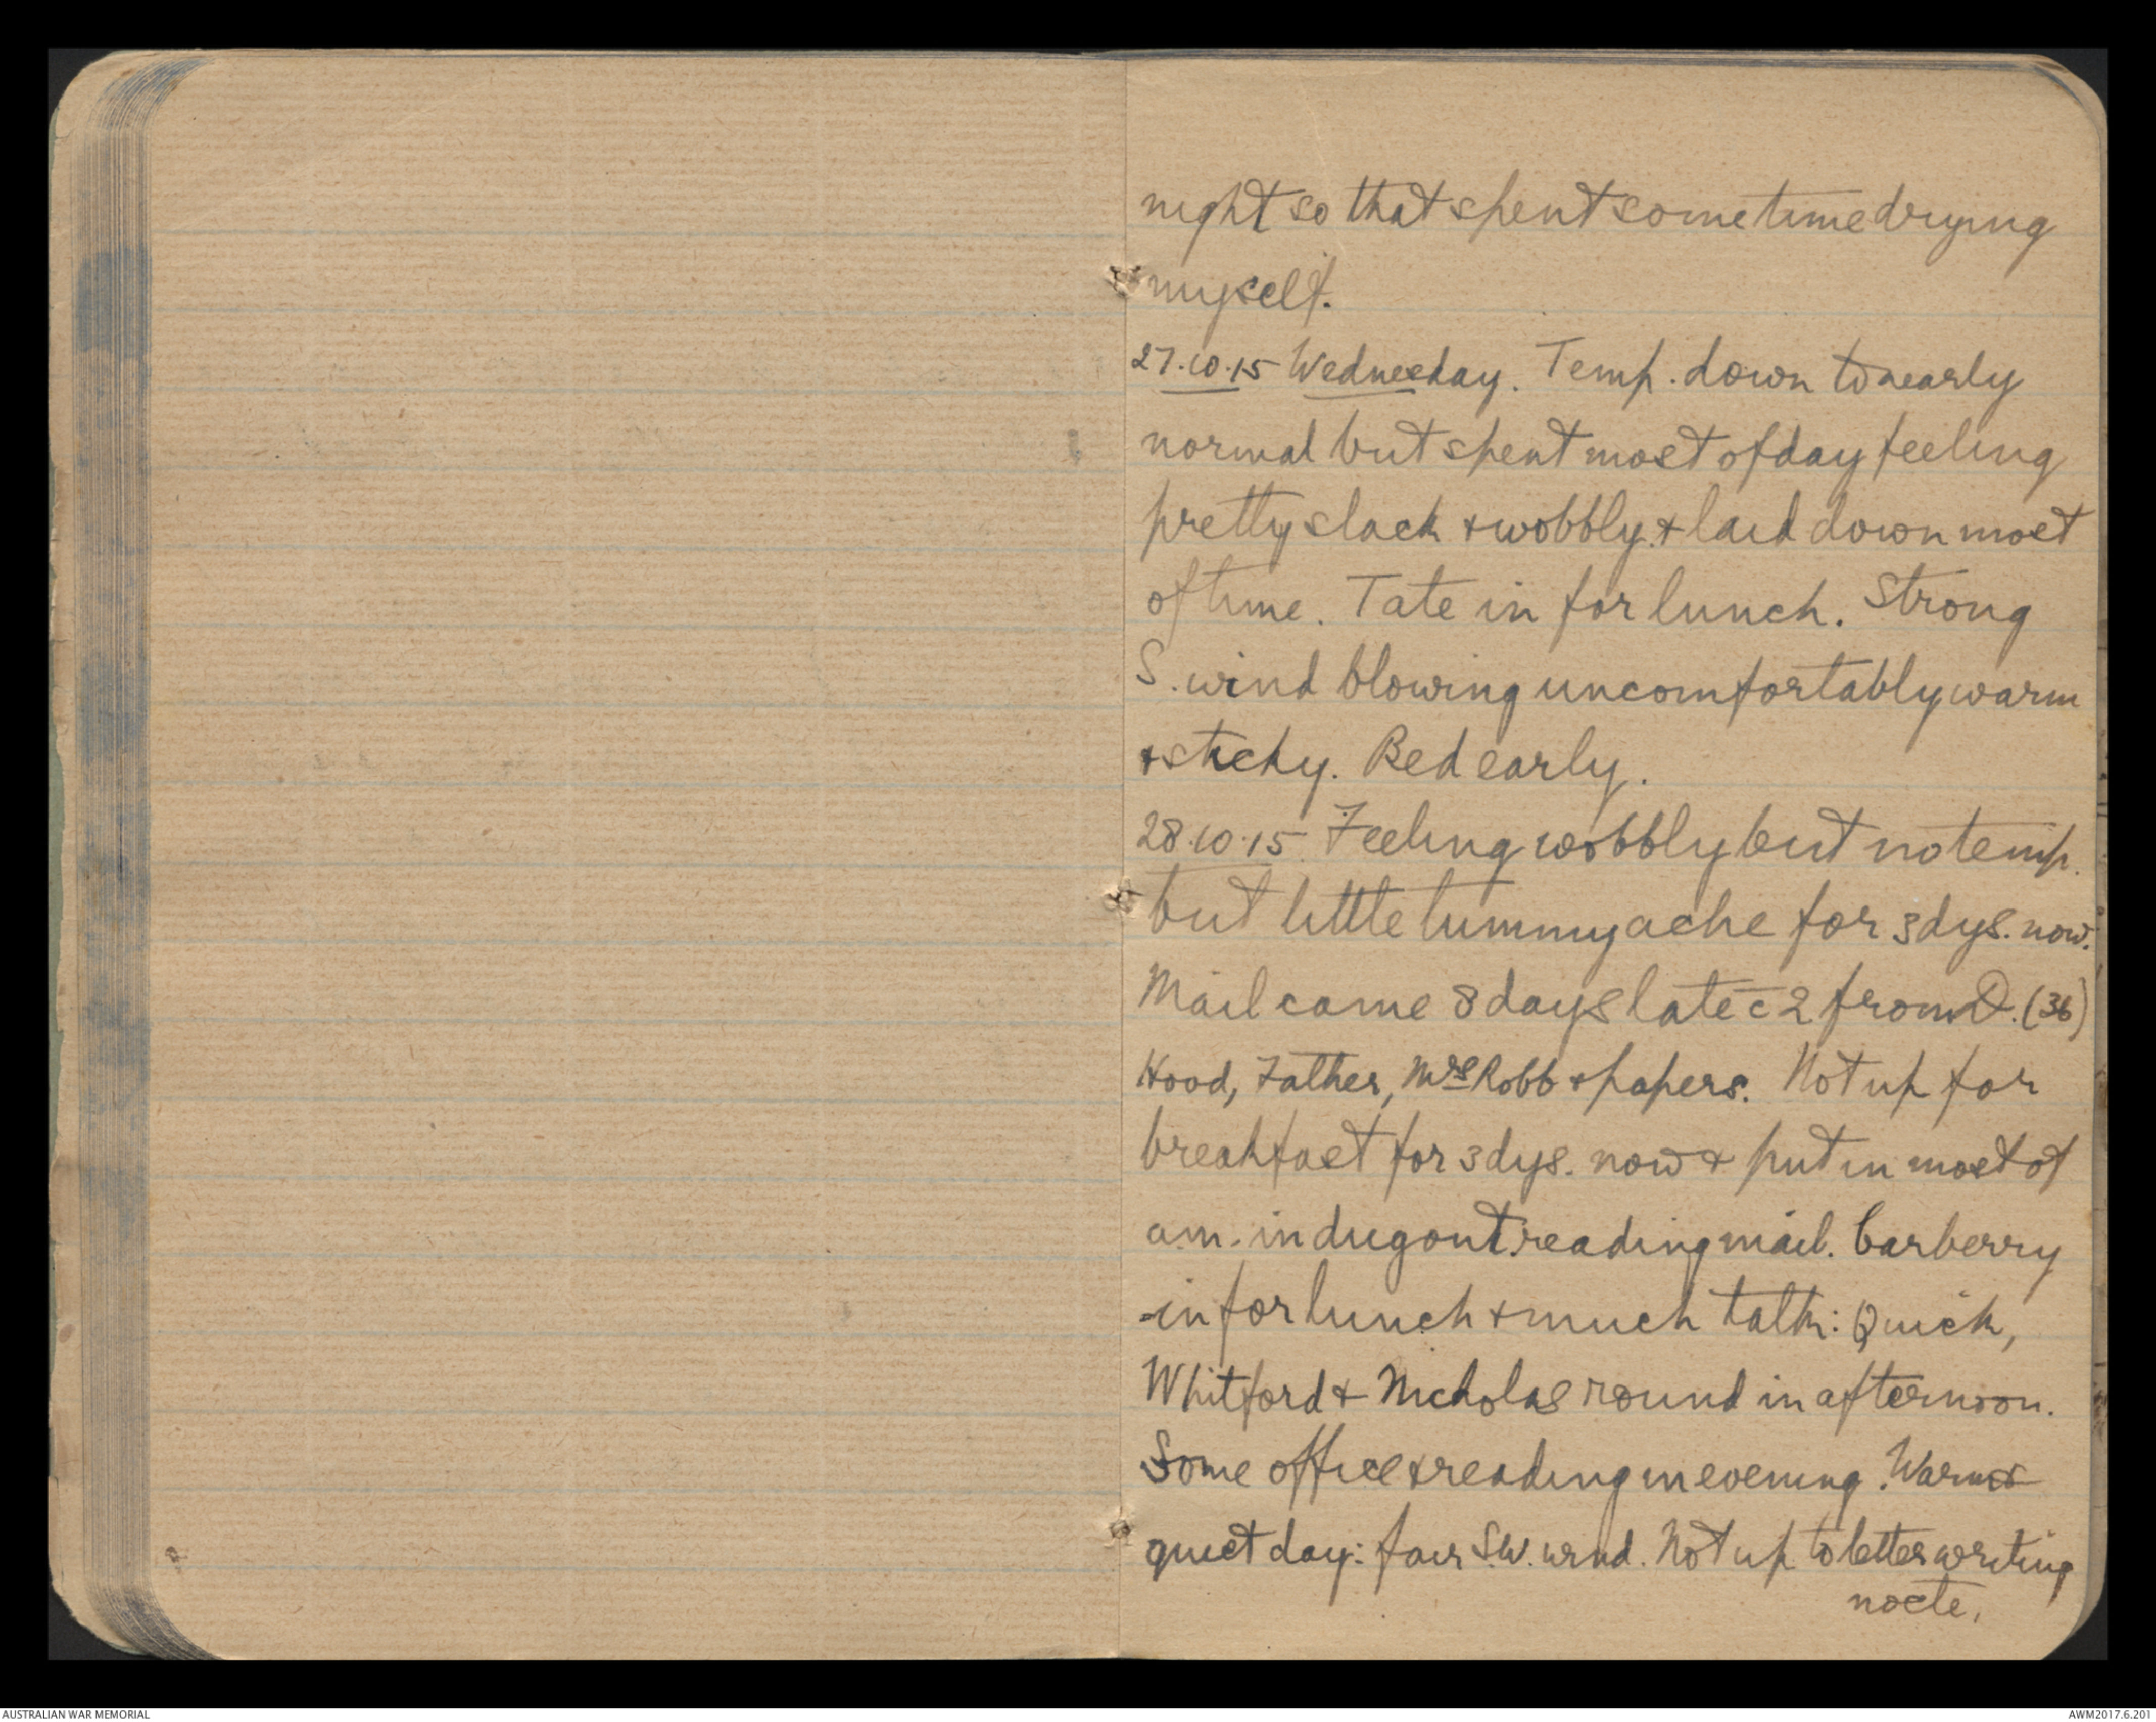 night so that spent some time drying
myself.
27.10.15 Wednesday. Temp. down to nearly
normal but spent most of day feeling
pretty slack & wobbly & laid down most
of time. Tate in for lunch. Strong
S. wind blowing uncomfortably warm
& sticky. Bed early.
28.10.15 Feeling wobbly but no temp.
but little tummy ache for 3 dys. now.
Mail came 8 days late c̄ 2 from D. (36)
Hood, Father, Mrs Robb & papers. Not up for
breakfast for 3 dys. now & put in most of
am. in dugout reading mail. Carberry
in for lunch & much talk: Quick,
Whitford & Nicholas round in afternoon.
Some office & reading in evening. Warm &
quiet day: fair S.W. wind. Not up to letter writing
nocte.
AUSTRALIAN WAR MEMORIAL
AWM2017.6.201